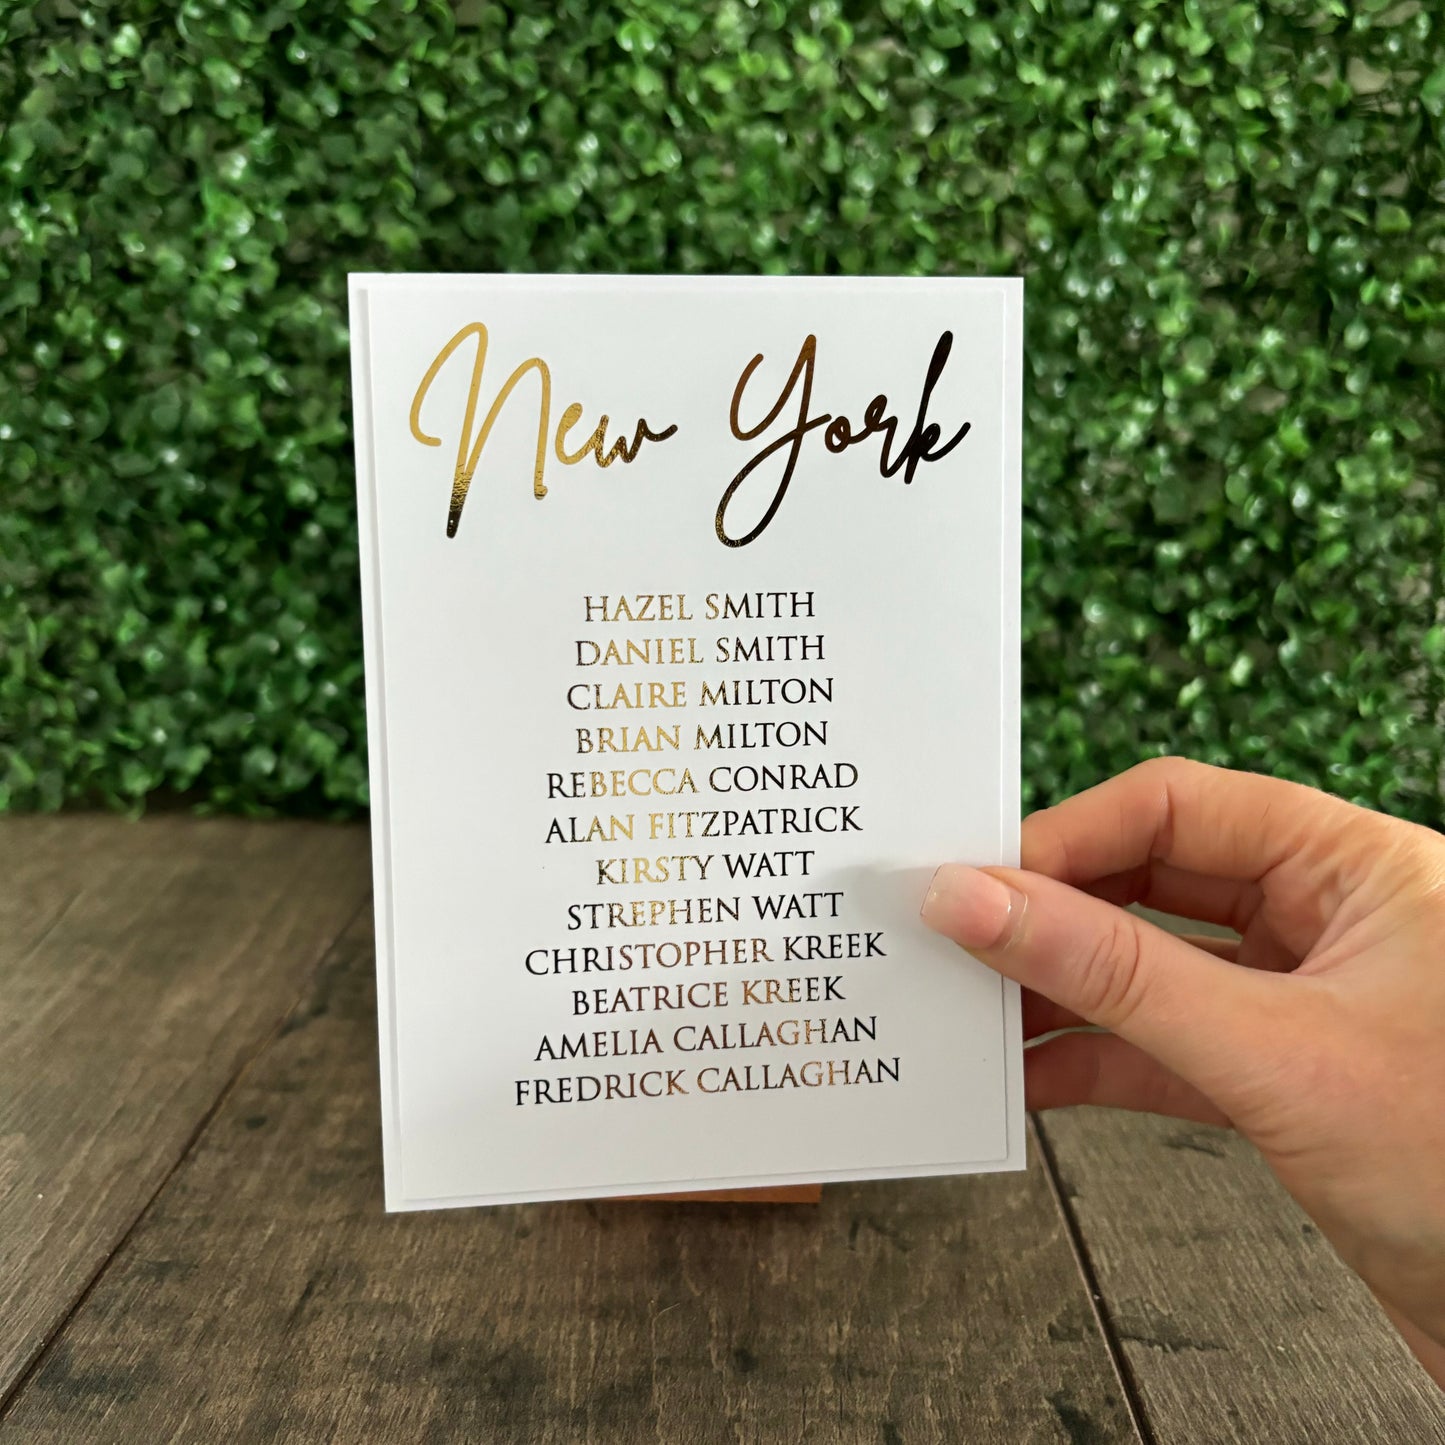 New York
HAZEL SMITH
DANIEL SMITH
CLAIRE MILTON
BRIAN MILTON
REBECCA CONRAD
ALAN FITZPATRICK
KIRSTY WATT
STREPHEN WATT
CHRISTOPHER KREEK
BEATRICE KREEK
AMELIA CALLAGHAN
FREDRICK CALLAGHAN